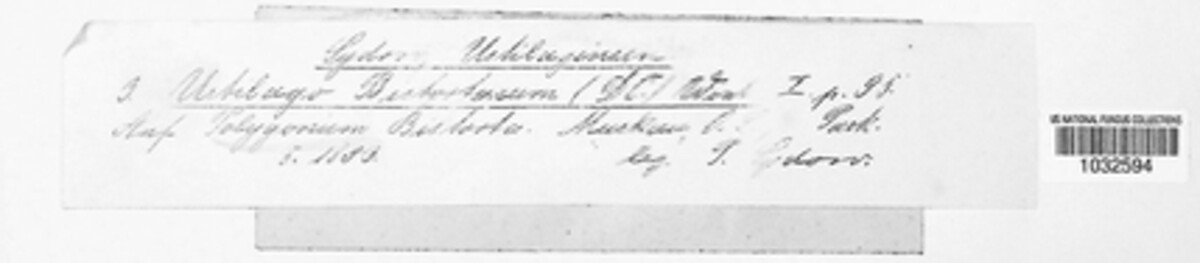 Sydow, Ustilagineen
3. Ustilago Bistortarum (DC.) I. p. 95.
Auf Polygonum Bistorta. Muskau Park.
5. 1883. leg. P. Sydow.
US NATIONAL FUNGUS COLLECTIONS
1032594